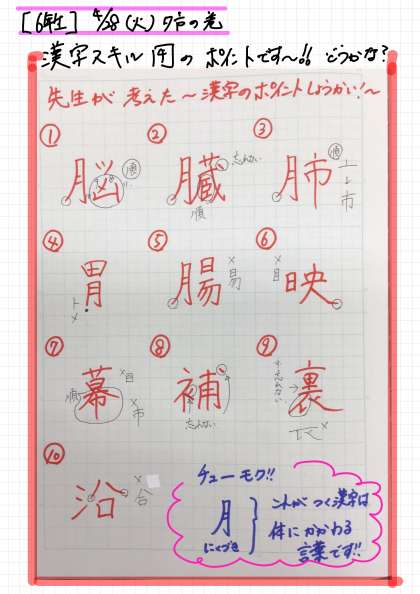 [6年生] 4/28(火) 夕方の巻
漢字スキル㊄のポイントです〜!! どうかな?
先生が考えた〜漢字のポイントしょうかい!〜
① ② ③
脳 順 臓 忘れない 順 肺 順 市
④ ⑤ ⑥
胃 腸 × 易 × 目 映
⑦ ⑧ ⑨
順 幕 × 目 × 市 補 忘れない 裏 ×
⑩
沿 × 合
チューモク!!
月 にくづき
これがつく漢字は
体にかかわる
言葉です!!